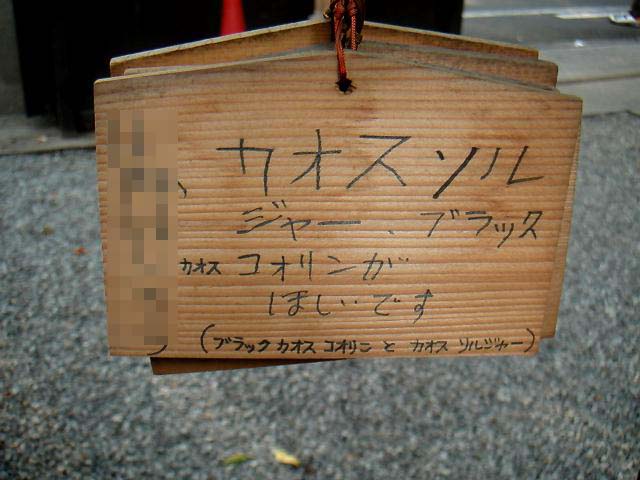 、カオスソル
ジャー、ブラック
カオスコォリンが
ほしいです
(ブラックカオスコオリンとカオスソルジャー)